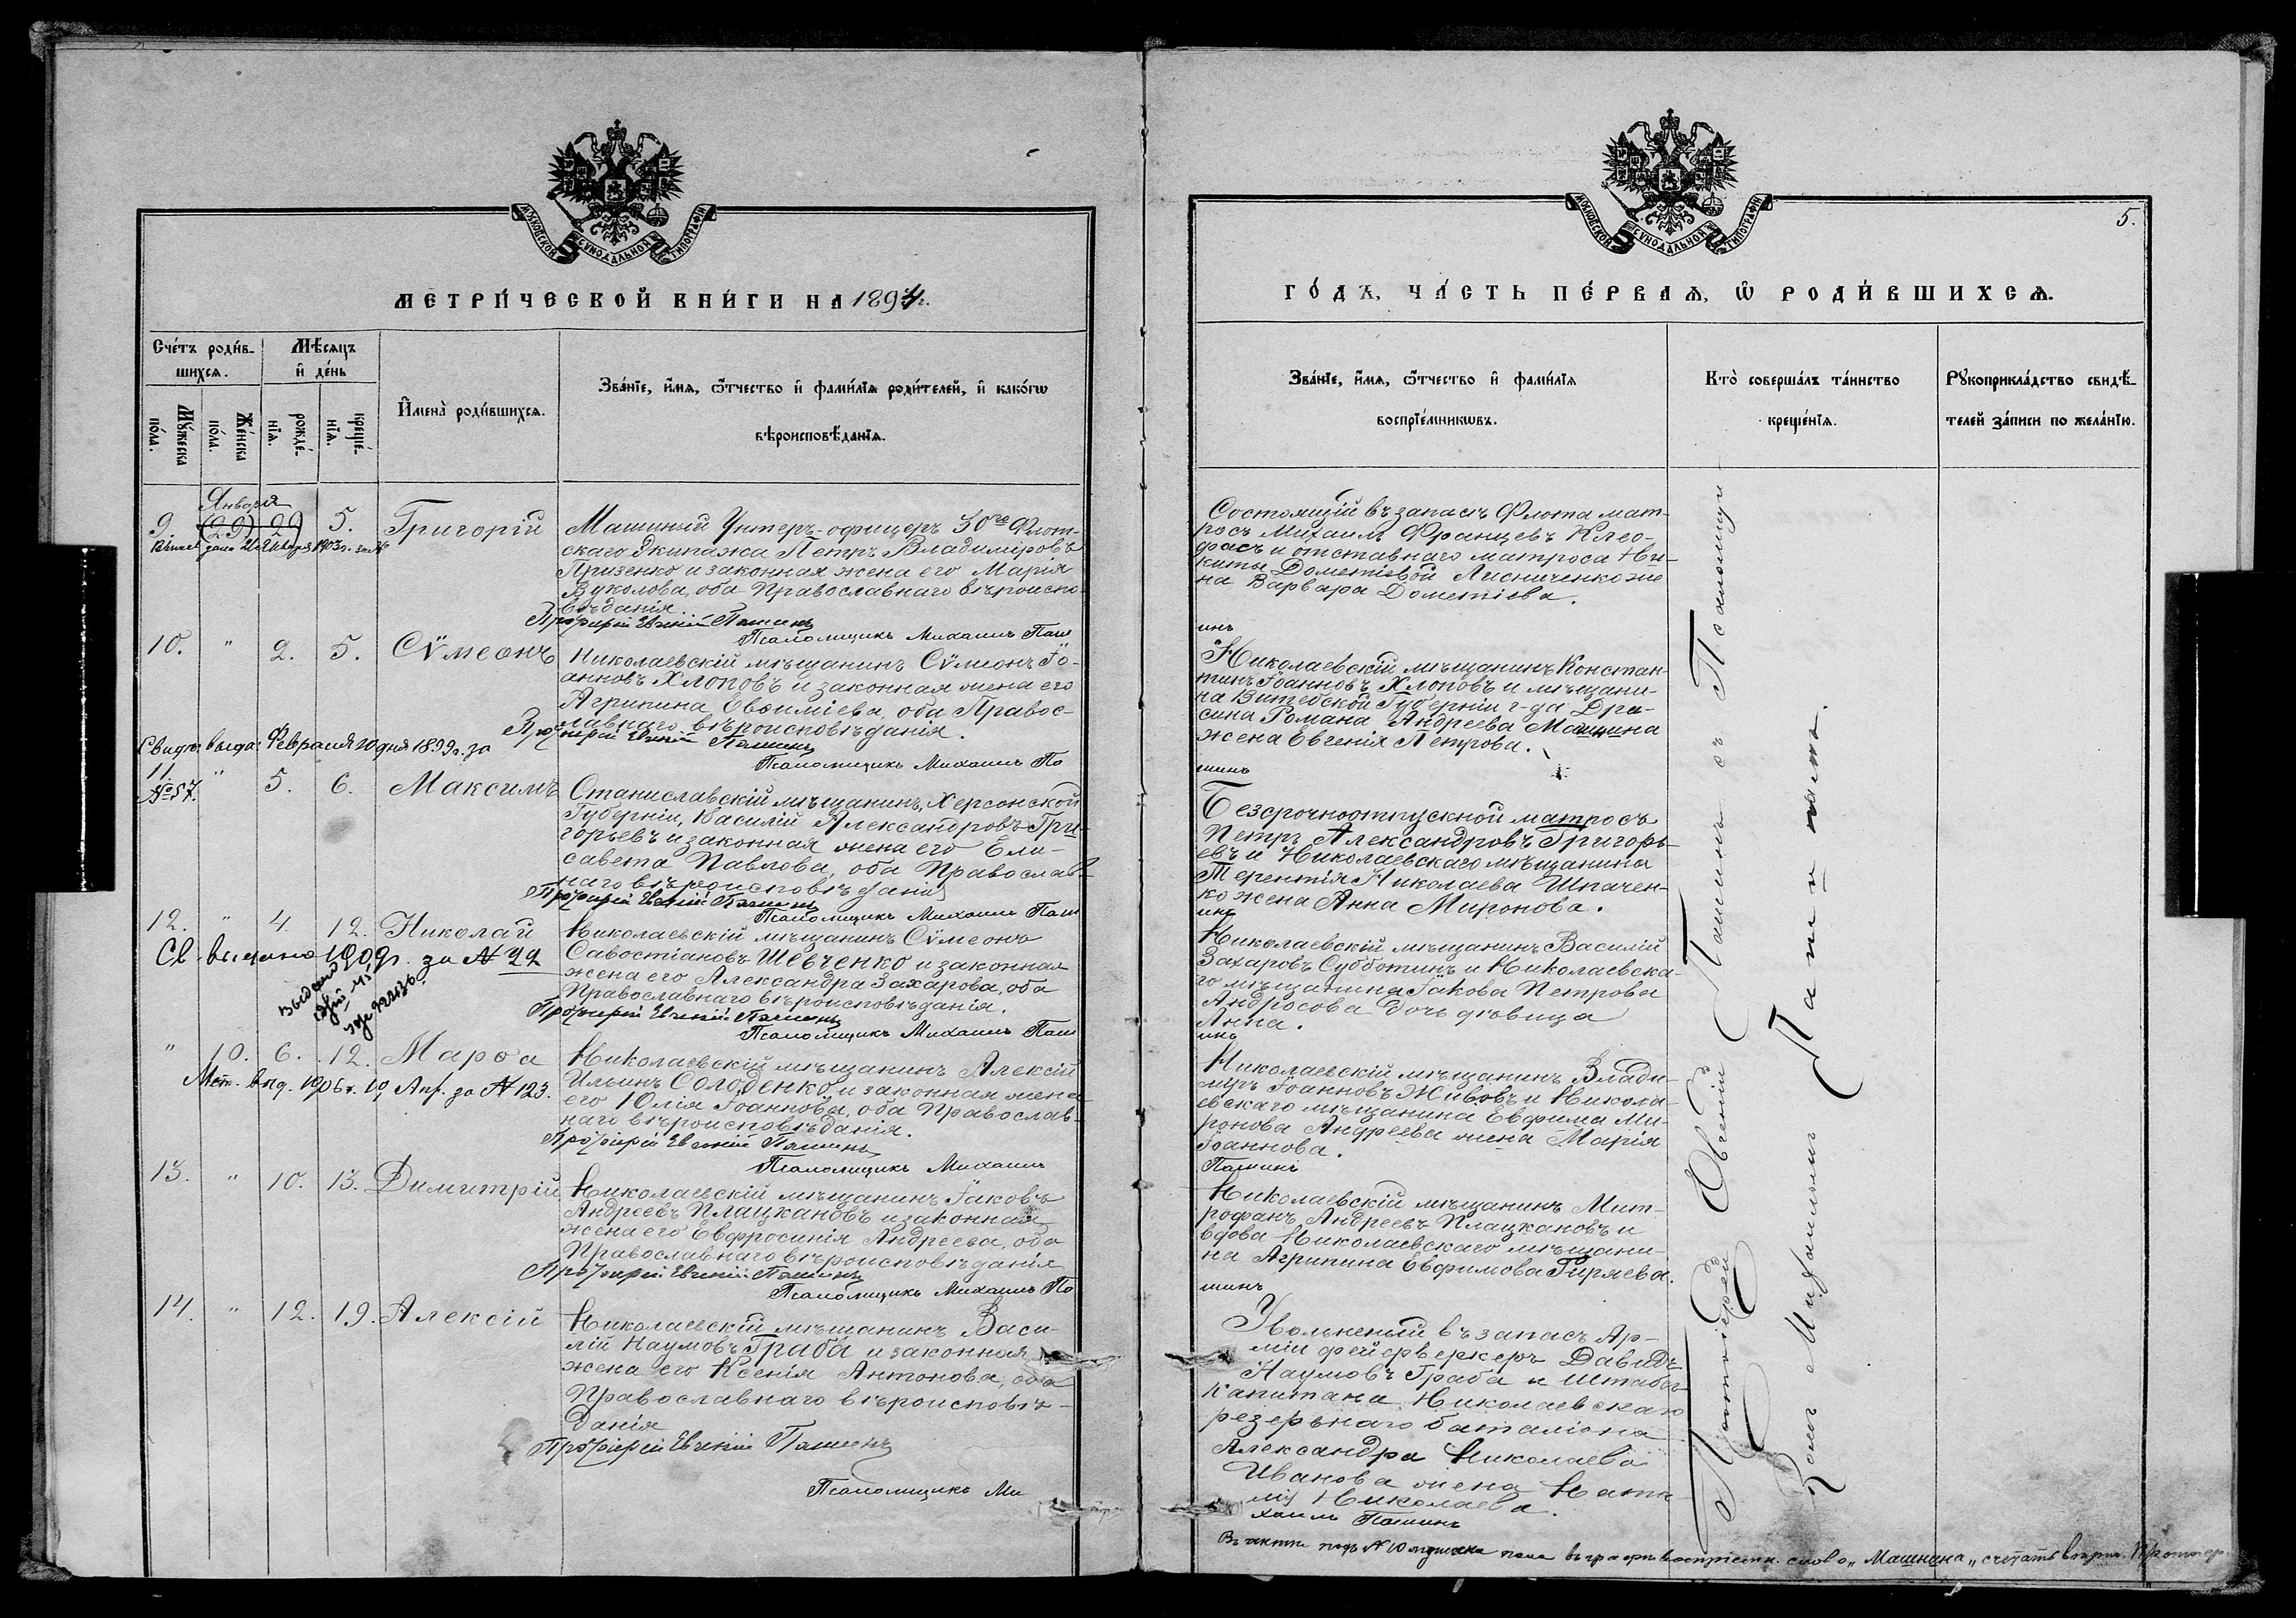 МОСКОВСКОЙ СѴНОДАЛЬНОЙ ТИПОГРАФІИ
МЕТРИ́ЧЕСКОЙ КНИ́ГИ НА 1894 г.
Счéтъ роди́в-
шихсѧ.
Мѣ́сѧцъ
и҆ дéнь
Мꙋ́жеска
пóла.
Жéнска
пóла.
рождé-
нїѧ.
крещé-
нїѧ.
И҆менà роди́вшихсѧ.
Звáнїе, и҆́мѧ, ѻ҆́тчество и҆ фами́лїѧ роди́телей, и҆ какóгѡ
вѣроисповѣ́данїѧ.
Января
9. (29) 29 5. Григорій
Машиный Унтеръ-офицеръ 30го Флот-
скаго Экипажа Петръ Владиміровъ
Призенко и законная жена его Марія
Вуколова, оба Православнаго вѣроиспо-
вѣданія.
Протоіерей Евгеній Пашинъ
Псаломщикъ Михаилъ Паш
10. " 2. 5. Сѵмеонъ
Николаевскій мѣщанинъ Сѵмеонъ Іо-
анновъ Хлоповъ и законная жена его
Агрипина Евѳиміева, оба Правос-
лавнаго вѣроисповѣданія.
Протоіерей Евгеній Пашинъ
Псаломщикъ Михаилъ Па
Свидѣт. выда: Февраля 20 дня 1899 г. за
№ 57.
11. " 5. 6. Максимъ
Станиславскій мѣщанинъ, Херсонской
Губерніи, Василій Александровъ Гри-
горьевъ и законная жена его Ели-
савета Павлова, оба Православ-
наго вѣроисповѣданія
Протоіерей Евгеній Пашинъ
Псаломщикъ Михаилъ Паш
12. " 4. 12. Николай
Св. выдано 1909 г. за № 22
Николаевскій мѣщанинъ Сѵмеонъ
Савостіановъ Шевченко и законная
жена его Александра Захарова, оба
Православнаго вѣроисповѣданія.
Протоіерей Евгеній Пашинъ
Псаломщикъ Михаилъ Паш
" 10. 6. 12. Марѳа
Мет. выд. 1906 г. 19 Апр. за № 123.
Николаевскій мѣщанинъ Алексій
Ильинъ Солоденко и законная жена
его Юлія Іоаннова, оба Православ-
наго вѣроисповѣданія.
Протоіерей Евгеній Пашинъ
Псаломщикъ Михаилъ
13. " 10. 13. Димитрій
Николаевскій мѣщанинъ Іаковъ
Андреевъ Плацкановъ и законная
жена его Евфросинія Андреева, оба
Православнаго вѣроисповѣданія
Протоіерей Евгеній Пашинъ
Псаломщикъ Михаилъ Па
14. " 12. 19. Алексій
Николаевскій мѣщанинъ Васи-
лій Наумовъ Граба и законная
жена его Ксенія Антонова, оба
Православнаго вѣроисповѣ-
данія
Протоіерей Евгеній Пашинъ
Псаломщикъ Ми
МОСКОВСКОЙ СѴНОДАЛЬНОЙ ТИПОГРАФІИ
5.
ГО́ДЪ, ЧА́СТЬ ПЕ́РВАѦ, Ѡ҆ РОДИ́ВШИХСѦ.
Звáнїе, и҆́мѧ, ѻ҆́тчество и҆ фами́лїѧ
воспрїéмникѡвъ.
Ктò совершáлъ тáинство
крещéнїѧ.
Рꙋкоприклáдство свидѣ́-
телей зáписи по желáнїю.
Состоящій въ запасѣ Флота мат-
росъ Михаилъ Францевъ Клео-
фасъ и отставнаго матроса Ни-
киты Дометіевой Лисниченко же-
на Варвара Дометіева.
инъ
Николаевскій мѣщанинъ Констан-
тинъ Іоанновъ Хлоповъ и мѣщани-
на Витебской Губерніи г-да Дри-
сина Романа Андреева Машнина
жена Евгенія Петрова.
шинъ
Безсрочноотпускной матросъ
Петръ Александровъ Григорь-
евъ и Николаевскаго мѣщанина
Терентія Николаева Шпачен-
ко жена Анна Миронова.
инъ
Николаевскій мѣщанинъ Василій
Захаровъ Субботинъ и Николаевска-
го мѣщанина Іакова Петрова
Андросова дочь дѣвица
Анна.
инъ
Николаевскій мѣщанинъ Влади-
міръ Іоанновъ Живовъ и Никола-
евскаго мѣщанина Евфима Ми-
ронова Андреева жена Марія
Іоаннова.
Пашинъ
Николаевскій мѣщанинъ Мит-
рофанъ Андреевъ Плацкановъ и
вдова Николаевскаго мѣщани-
на Агрипина Евфимова Гиряева.
шинъ
Увольненый въ запасъ Ар-
міи фейерверкеръ Давидъ
Наумовъ Граба и Штабсъ-
капитана Николаевскаго
резервнаго баталіона
Александра Николаева
Иванова жена Ната-
лія Николаева.
хаилъ Пашинъ
Протоіерей Евгеній Пашинъ съ Псаломщи
комъ Михаиломъ Пашинымъ.
Въ актѣ подъ № 10 мужеска пола въ графѣ воспріемн. слово „Машнина„ считать вѣрн. Протоіер.